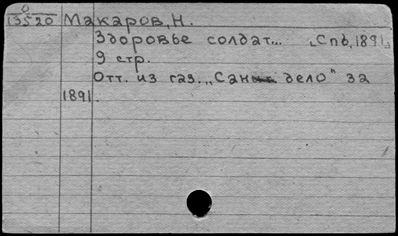 0
13520 Макаров, Н.
Здоровье солдат... [Спб, 1891]
9 стр.
Отт. из газ. „Сан. дело" за
1891.